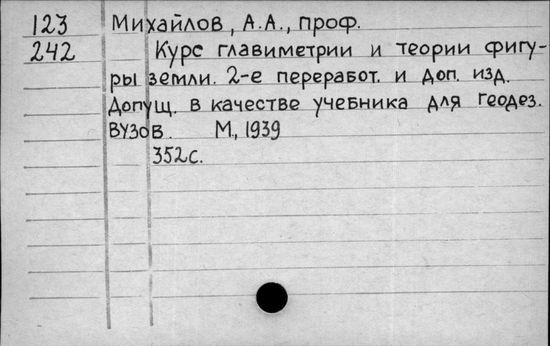 123 Михайлов, А.А., проф.
242 Курс главиметрии и теории фигу-
ры земли. 2-е переработ. и доп. изд.
Допущ. в качестве учебника для геодез.
вузов. М., 1939
352с.